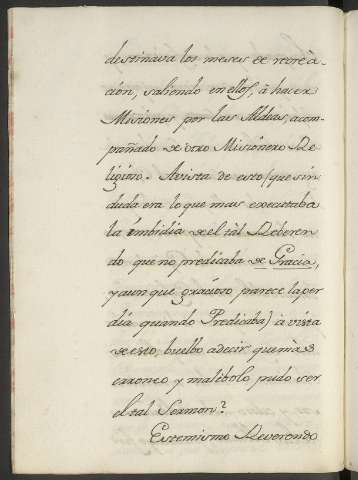 destinava los meses de recreà-
ción, saliendo en ellos, à hacer
Misiones por las Aldeas, acom-
pañado de otro Misiònero Re-
ligioso. Avista de esto (que sin
duda era lo que mas executaba
la imbidia de el tàl Reberen-
do que no predicaba de Gracia,
y aun que gracioso parece la per-
dia quando Predicaba) à vista
de esto, buelbo adecir quemàs
erroneo y malèbolo pudo ser
el tal Sermon?
Estemismo Reverendo